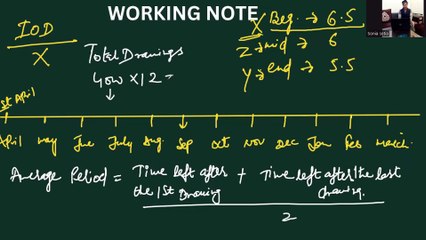 WORKING NOTE
IOD
X
Total Drawings
400 x 12 =
X Beg. → 6.5
Z → mid → 6
Y → end → 5.5
1st April
April may June July Aug. Sep Oct Nov Dec Jan Feb March.
Average Period = Time left after the 1st Drawing + Time left after the last drawing.
2